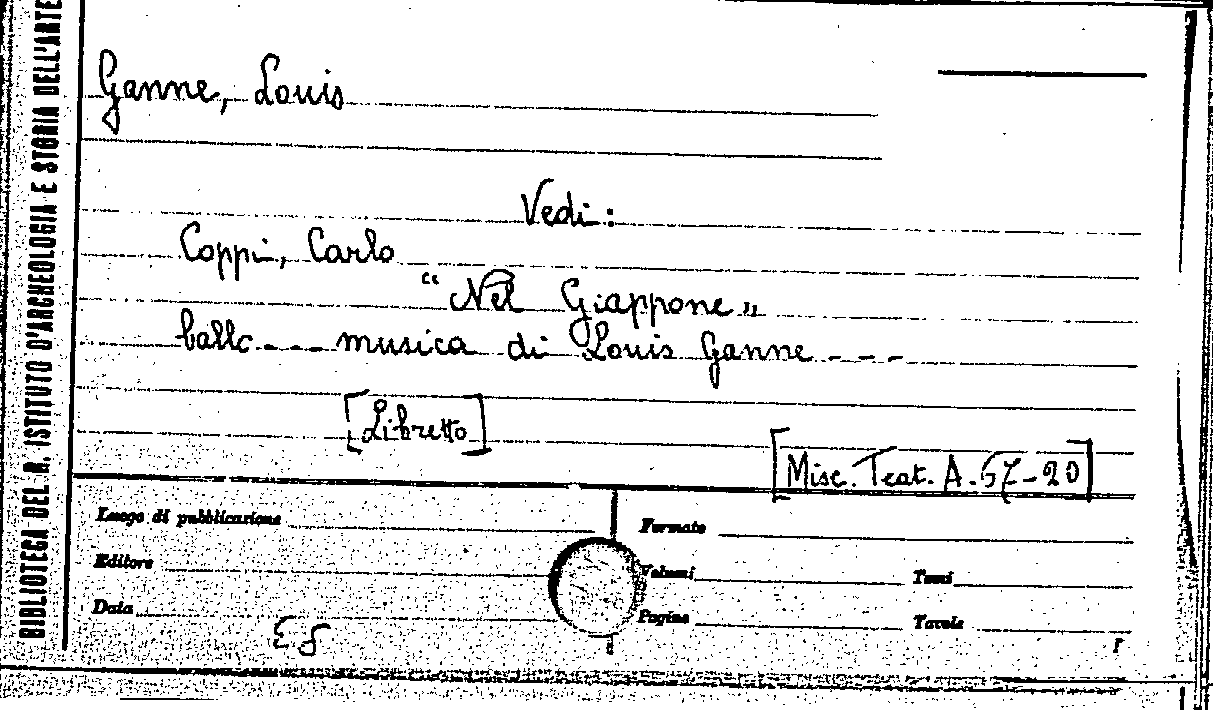 BIBLIOTECA DEL R. ISTITUTO D'ARCHEOLOGIA E STORIA DELL'ARTE
Ganne, Louis
Vedi:
Coppi, Carlo
“Nel Giappone„
ballo --- musica di Louis Ganne ---
[Libretto]
[Misc. Teat. A. 57-20]
Luogo di pubblicazione
Formato
Editore
Volumi
Tomi
Data
Pagine
Tavole